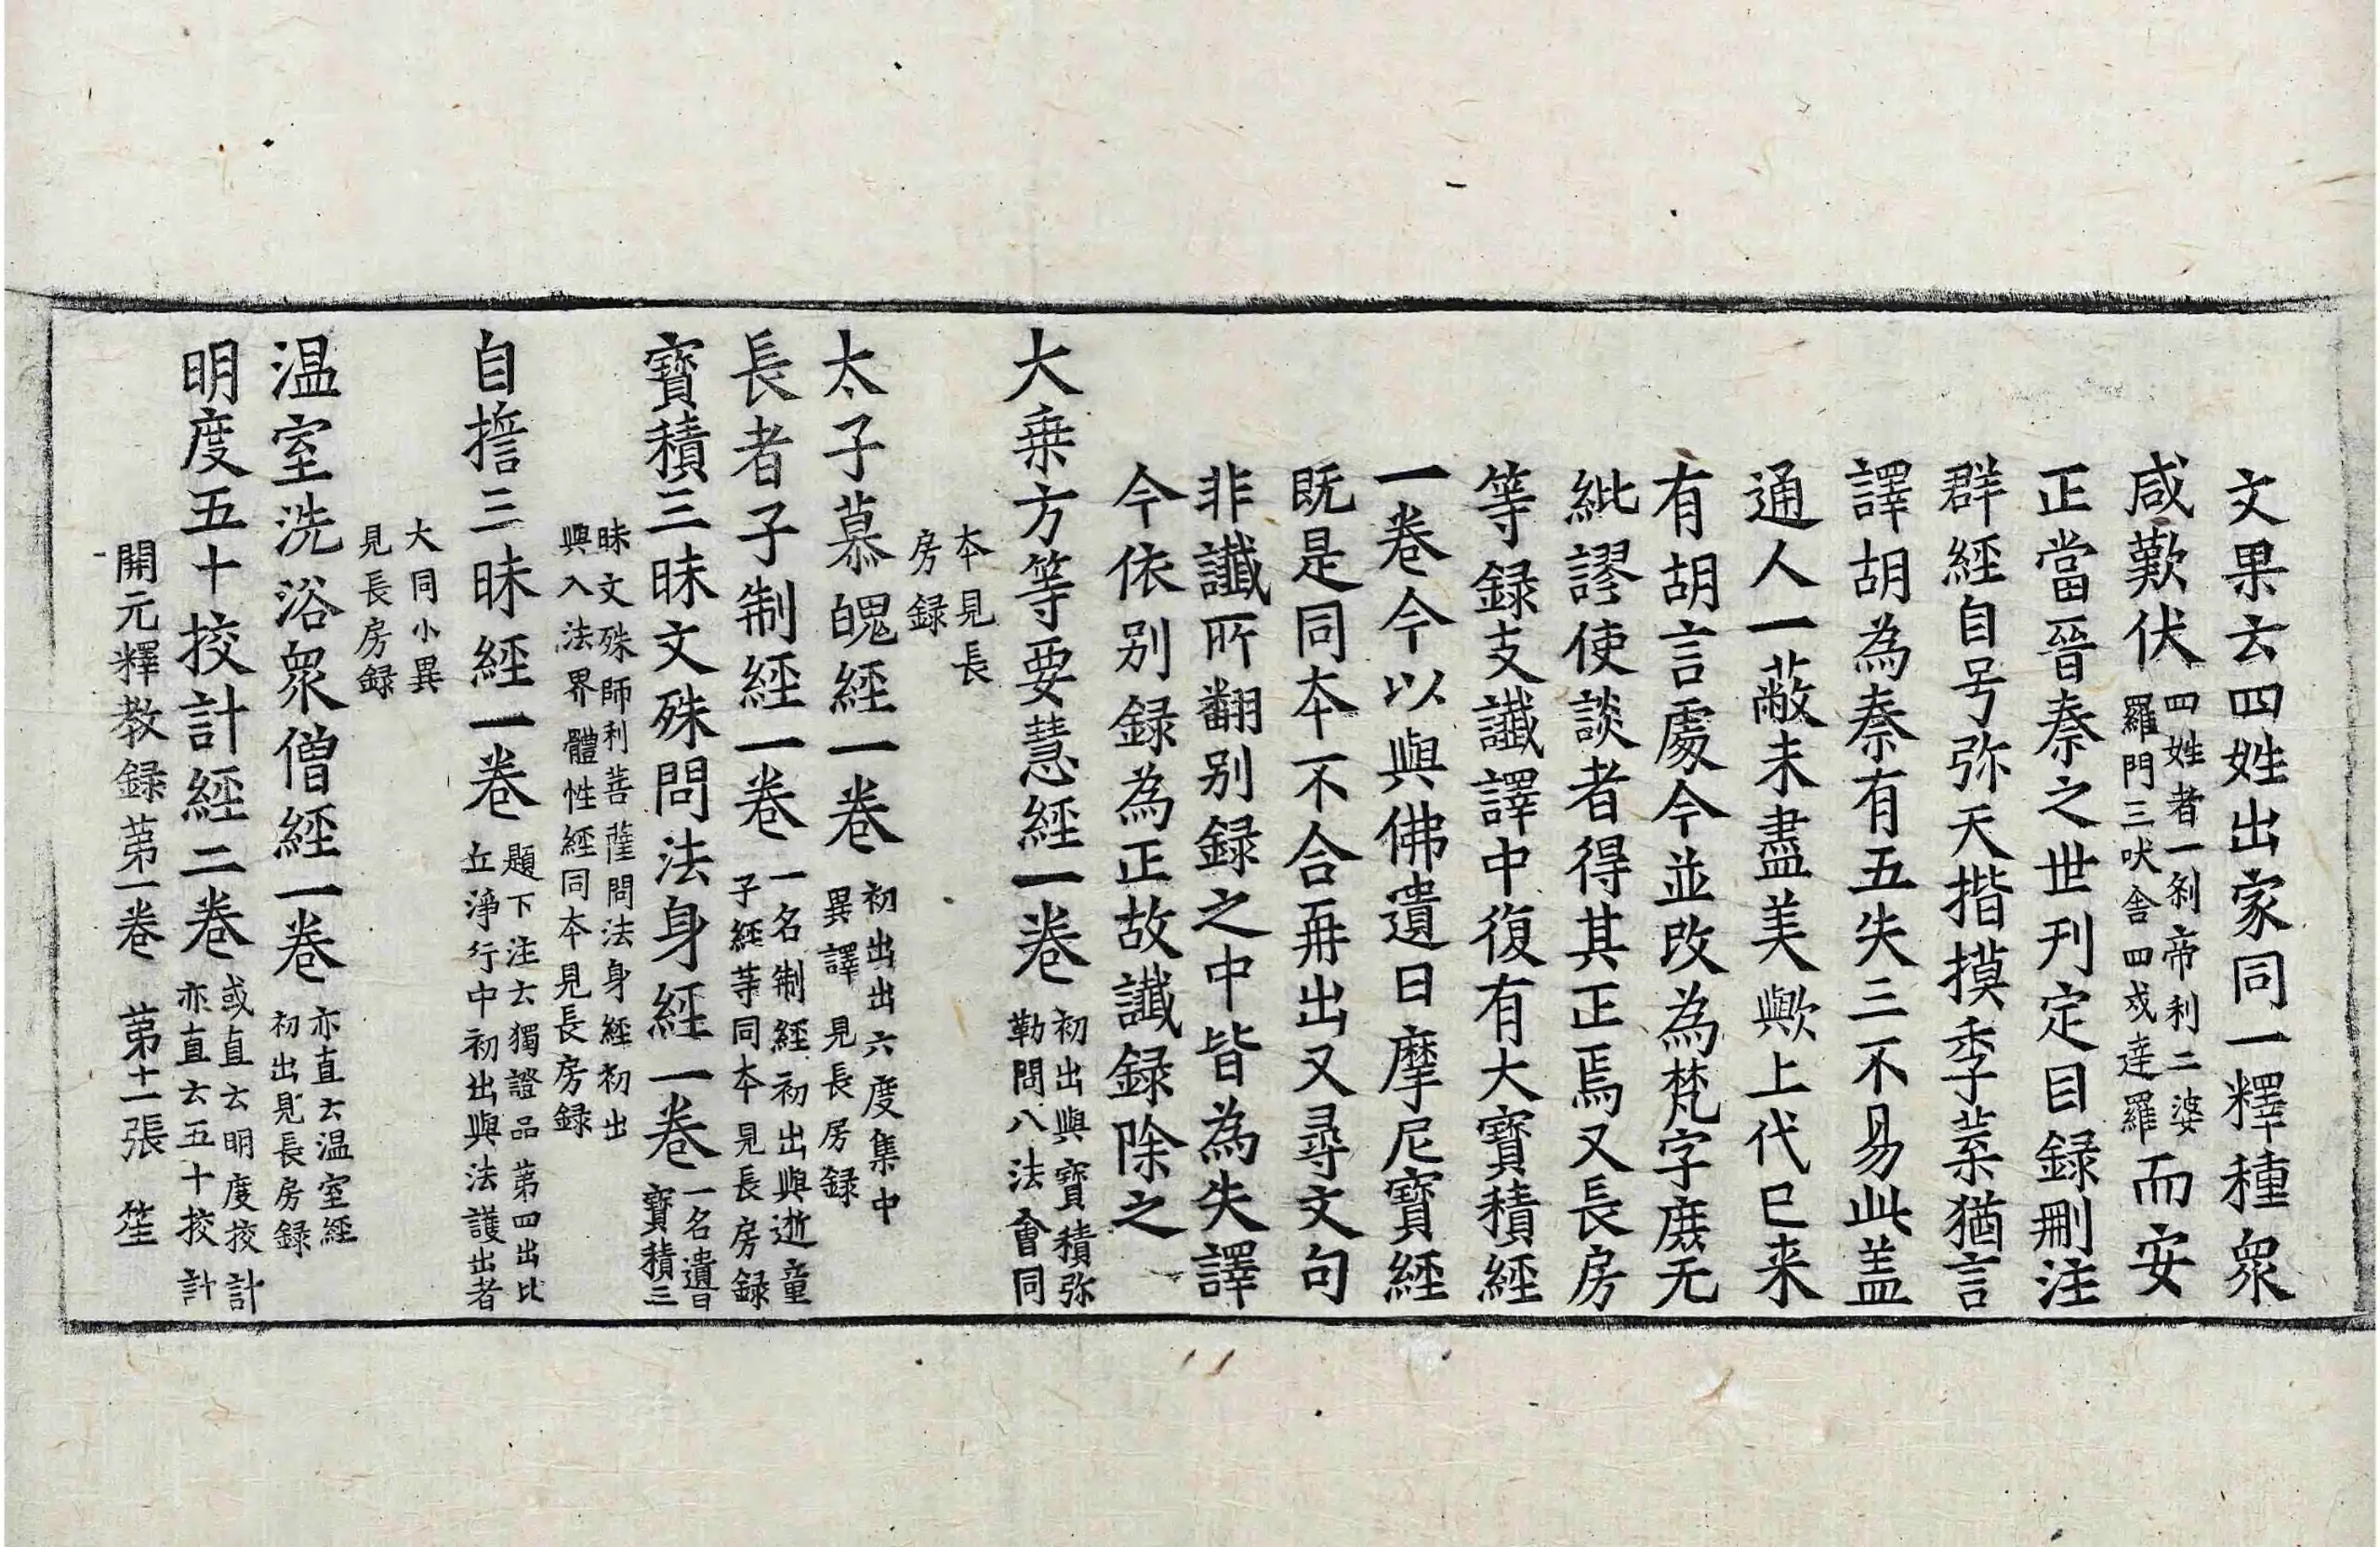 文果去四姓出家同一釋種衆
咸歎伏四姓者一刹帝利二婆
羅門三吠舍四戍達羅而安
正當晉秦之世刊定目録刪注
群經自号弥天揩摸季葉猶言
譯胡為秦有五失三不易此盖
通人一蔽未盡美歟上代已来
有胡言處今並改為梵字庶无
紕謬使談者得其正焉又長房
等録支讖譯中復有大寶積經
一卷今以與佛遺日摩尼寶經
既是同夲不合再出又尋文句
非讖所翻别録之中皆為失譯
今依别録為正故讖録除之
大乗方等要慧經一卷初出與寶積弥
勒問八法會同
夲見長
房録
太子慕魄經一卷初出出六度集中
異譯見長房録
長者子制經一卷一名制經初出與逝童
子經等同夲見長房録
寶積三昧文殊問法身經一卷一名遺日
寶積三
昧文殊師利菩薩問法身經初出
與入法界體性經同夲見長房録
自揩三昧經一卷題下注云獨證品第四出比
丘淨行中初出與法護出者
大同小異
見長房録
温室洗浴衆僧經一卷亦直云温室經
初出見長房録
明度五十挍計經二卷或直云明度挍計
亦直云五十挍計
開元釋教録苐一卷　苐十一張　笙